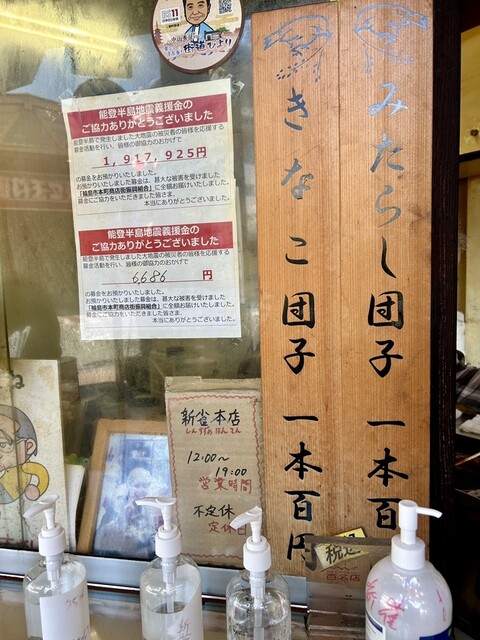 みたらし団子 一本百
きなこ団子 一本百円
能登半島地震義援金の
ご協力ありがとうございました
能登半島で発生しました大地震の被災者の皆様を応援する
募金活動を行い、皆様の御協力のおかげで
1,917,925円
の募金をお預かりいたしました。
お預かりいたしました募金は、甚大な被害を受けました
「輪島市本町商店街振興組合」に全額お届けいたしました。
募金にご協力をいただきました皆さま、
本当にありがとうございました。
能登半島地震義援金の
ご協力ありがとうございました
能登半島で発生しました大地震の被災者の皆様を応援する
募金活動を行い、皆様の御協力のおかげで
6,686円
の募金をお預かりいたしました。
お預かりいたしました募金は、甚大な被害を受けました
「輪島市本町商店街振興組合」に全額お届けいたしました。
募金にご協力をいただきました皆さま、
本当にありがとうございました。
新雀本店
しんすずめほんてん
12:00〜
19:00
営業時間
不定休
定休日
税込
新雀